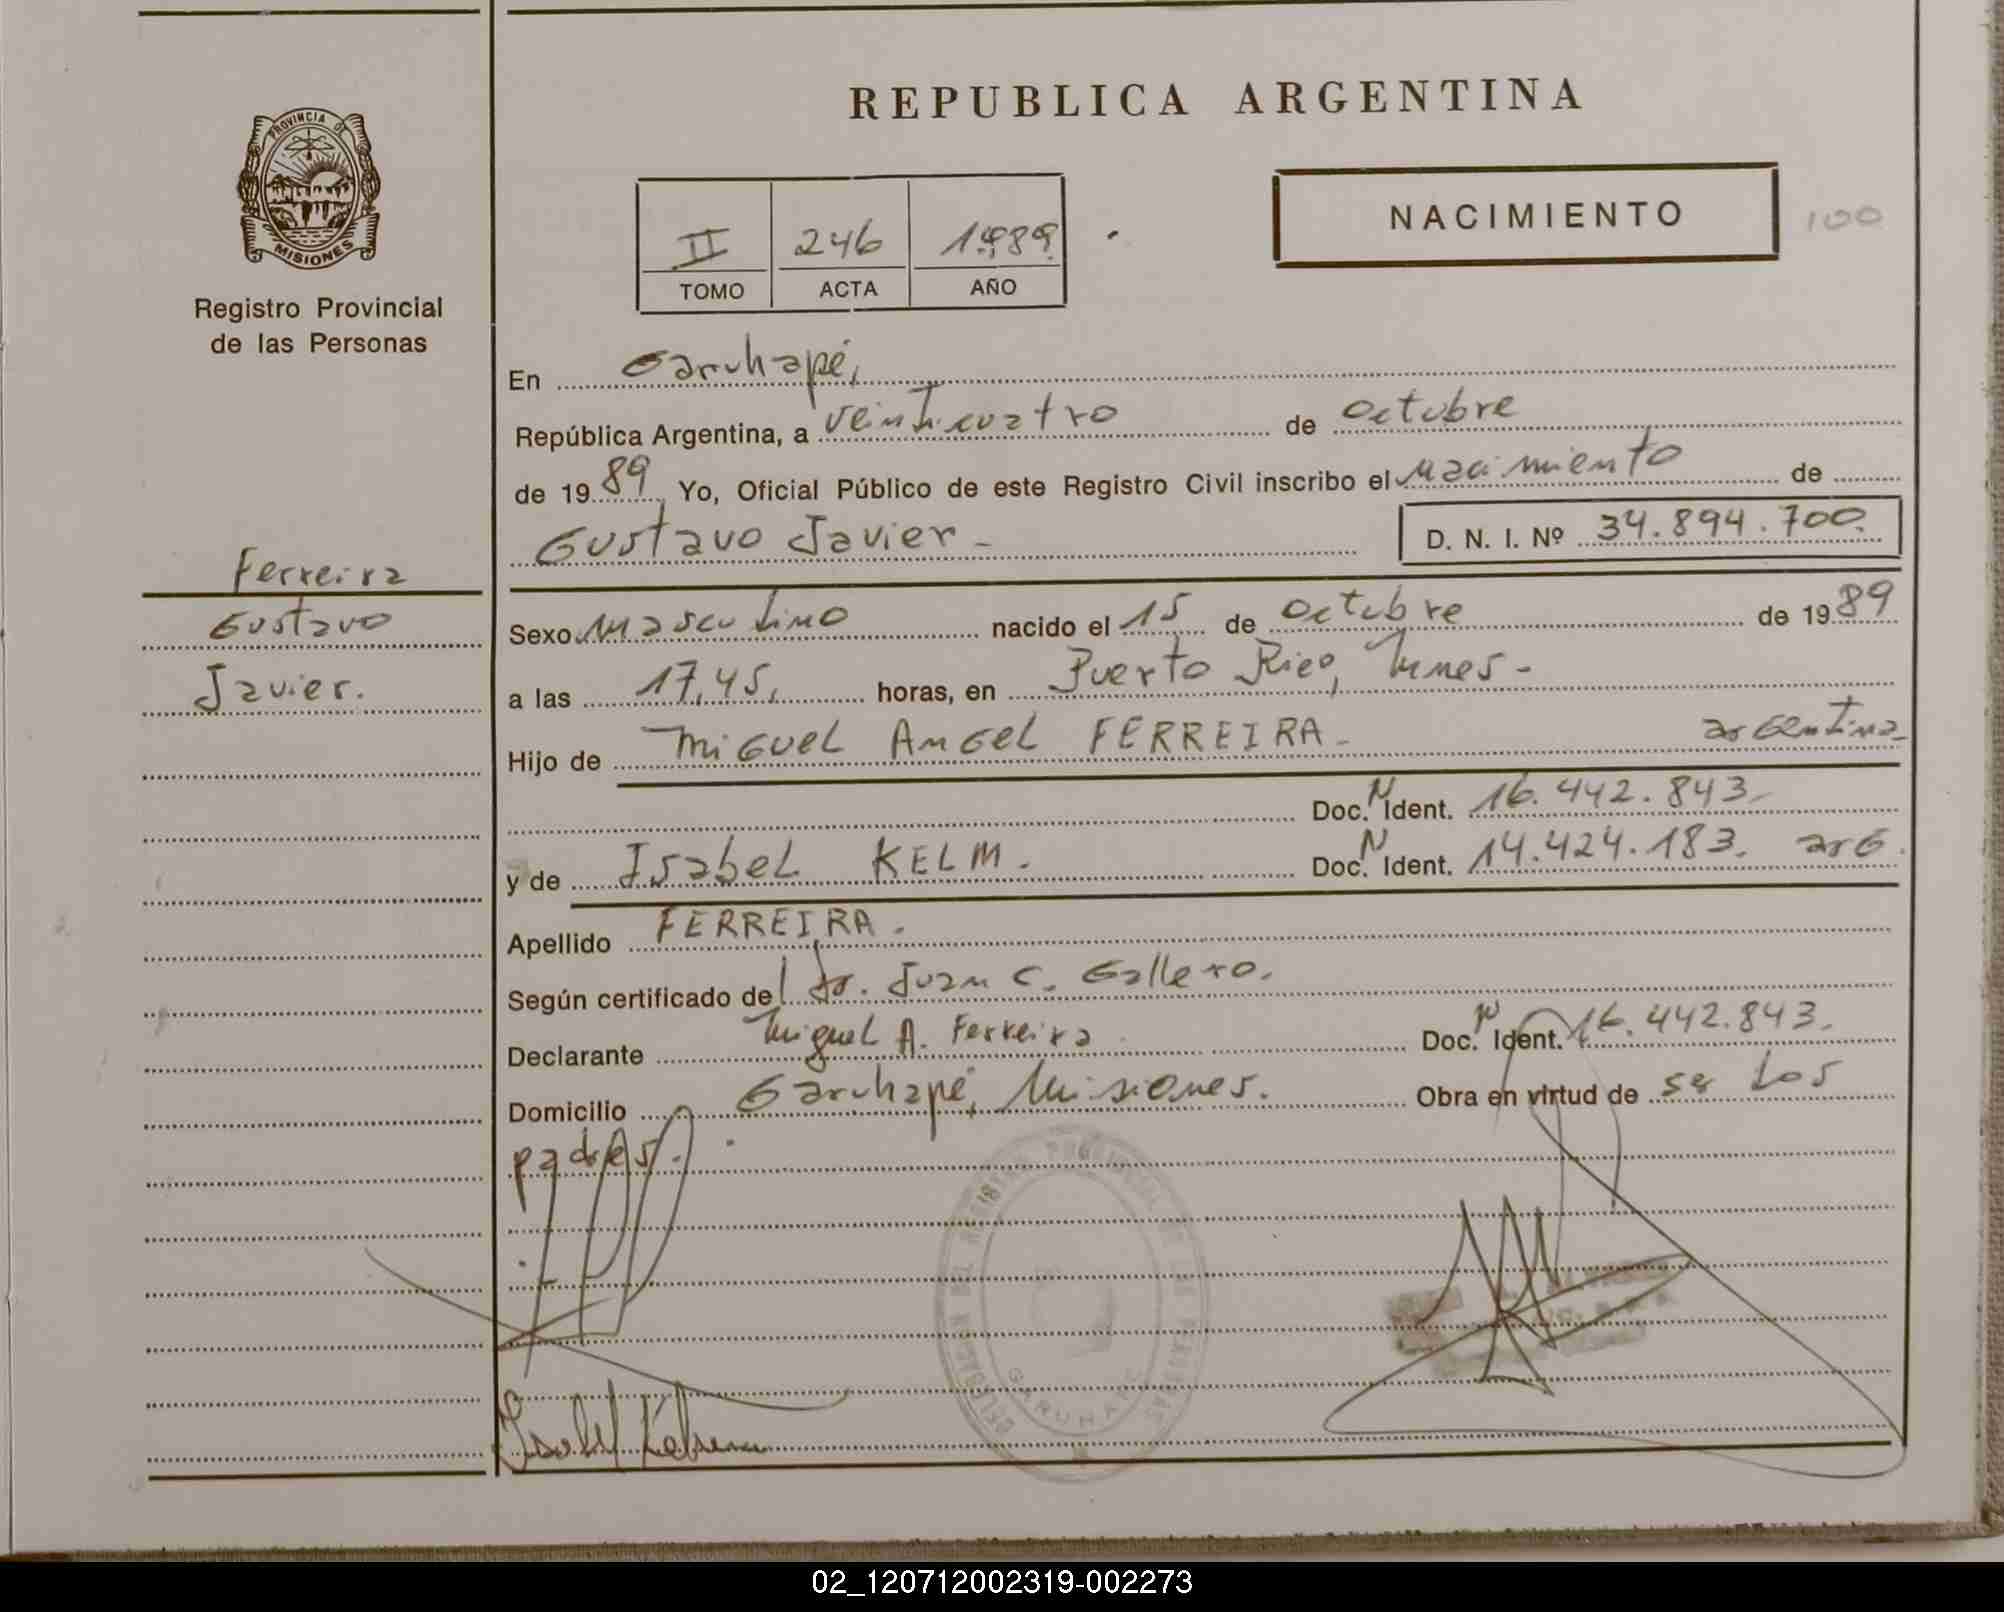 REPUBLICA ARGENTINA
PROVINCIA DE
MISIONES
Registro Provincial
de las Personas
II 246 1.989
TOMO ACTA AÑO
NACIMIENTO
100
En Garuhapé,
República Argentina, a veinticuatro de octubre
de 1989, Yo, Oficial Público de este Registro Civil inscribo el nacimiento de
Gustavo Javier - D. N. I. Nº 34.894.700.
Ferreira
Gustavo
Javier.
Sexo masculino nacido el 15 de octubre de 1989
a las 17,45, horas, en Puerto Rico, -
Hijo de Miguel Angel FERREIRA - argentina
Doc. N Ident. 16.442.843.
y de Isabel KELM. Doc. N Ident. 14.424.183. arg.
Apellido FERREIRA.
Según certificado del Dr. Juan C. Gallero.
Declarante Miguel A. Ferreira Doc. N Ident. 16.442.843.
Domicilio Garuhapé, Misiones. Obra en virtud de ser los
padres.
DELEGACION DEL REGISTRO PROVINCIAL DE LAS PERSONAS
GARUHAPE
Isabel
02_120712002319-002273